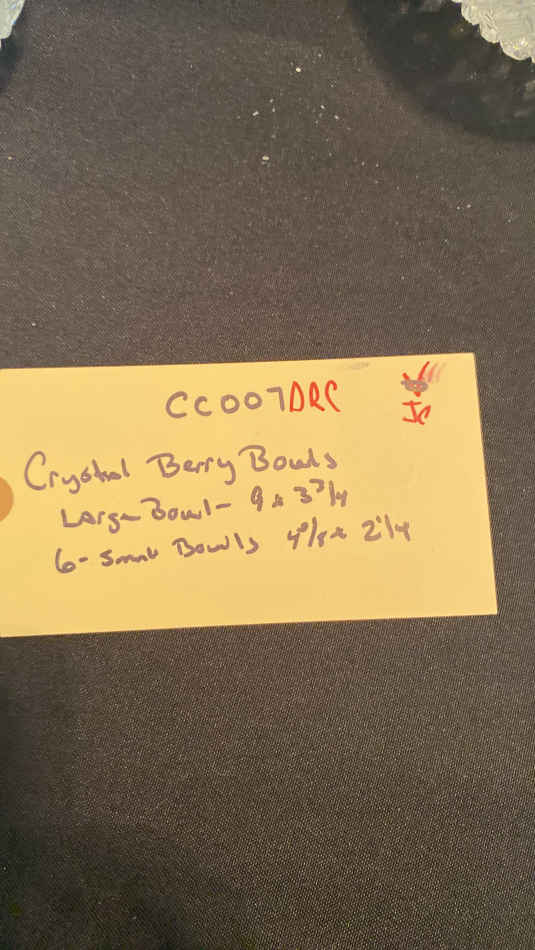 CC007DRC
JC
Crystal Berry Bowls
Large Bowl - 9 x 3 3/4
6 - Small Bowls 4 x 2 1/4